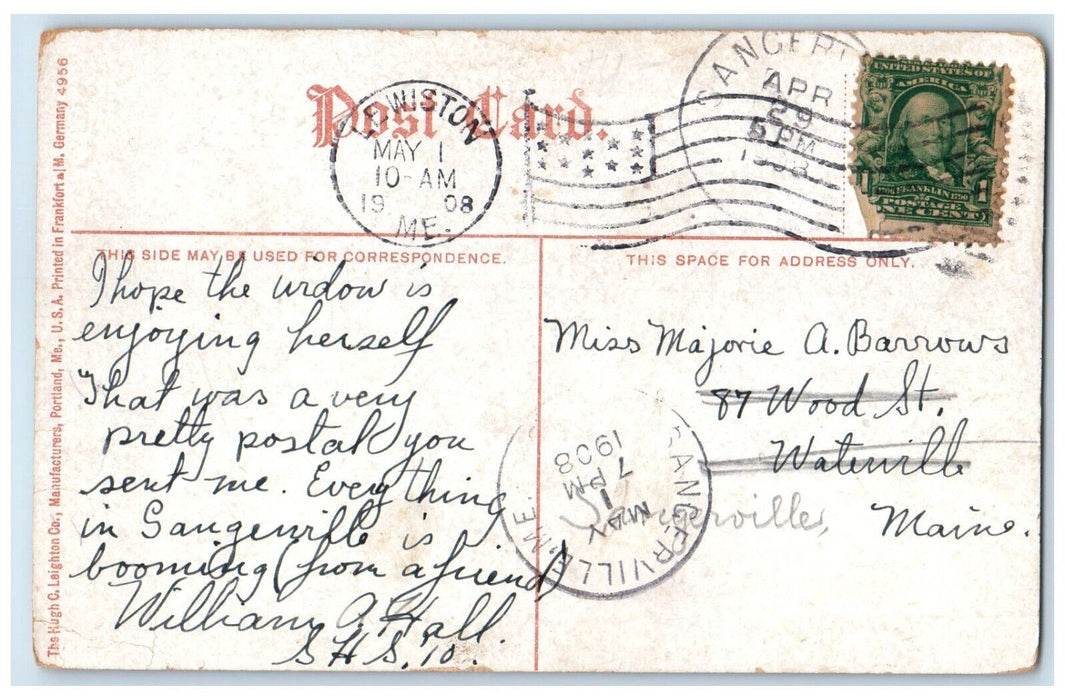 Post Card.
LEWISTON
MAY 1
10-AM
1908
ME.
SANGER
APR
29
5 PM
1908
UNITED STATES OF
AMERICA
1706 FRANKLIN 1790
1 1
POSTAGE
ONE CENT
THIS SIDE MAY BE USED FOR CORRESPONDENCE.
THIS SPACE FOR ADDRESS ONLY.
The Hugh C. Leighton Co., Manufacturers, Portland, Me., U.S.A. Printed in Frankfort a/M. Germany 4956
I hope the widow is
enjoying herself
That was a very
pretty postal you
sent me. Every thing
in Sangerville is
booming (from a friend)
William A. Hall.
S.H.S. '10.
Miss Majorie A. Barrows
87 Wood St.
Waterville
Sangerville,
Maine.
SANGERVILLE ME.
MAY
1
7 PM
1908